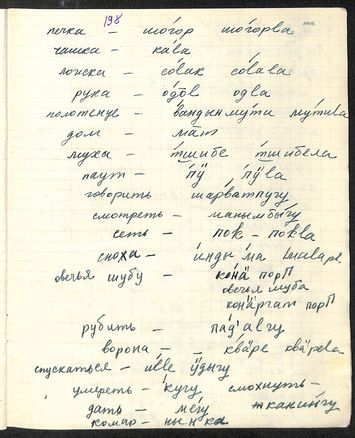 198
печка – шо́гор шо́горва
чашка – ка́ва
ложка – со́вак со́вава
рука – о́дов одва
полотенце – ва́ндын му́ти му́тива
дом – ма̄т
муха – тши́бе тши́бела
паут – пӱ́ пӱ́ва
говорить шарва́тпугу
смотреть – манымбы́гу
сеть – пок – по́ква
сноха – и́нды ма
овечья шубу – конӓ порП
овечья шуба
конӓргат порП
рубить – па́д'алгу
ворона – квӓ́ре квӓ́рева
спускаться – и́лле ӱ́дыгу
умереть – ку́гу смохнуть –
дать – ме́гу ткани́гу
комар – ны́нка